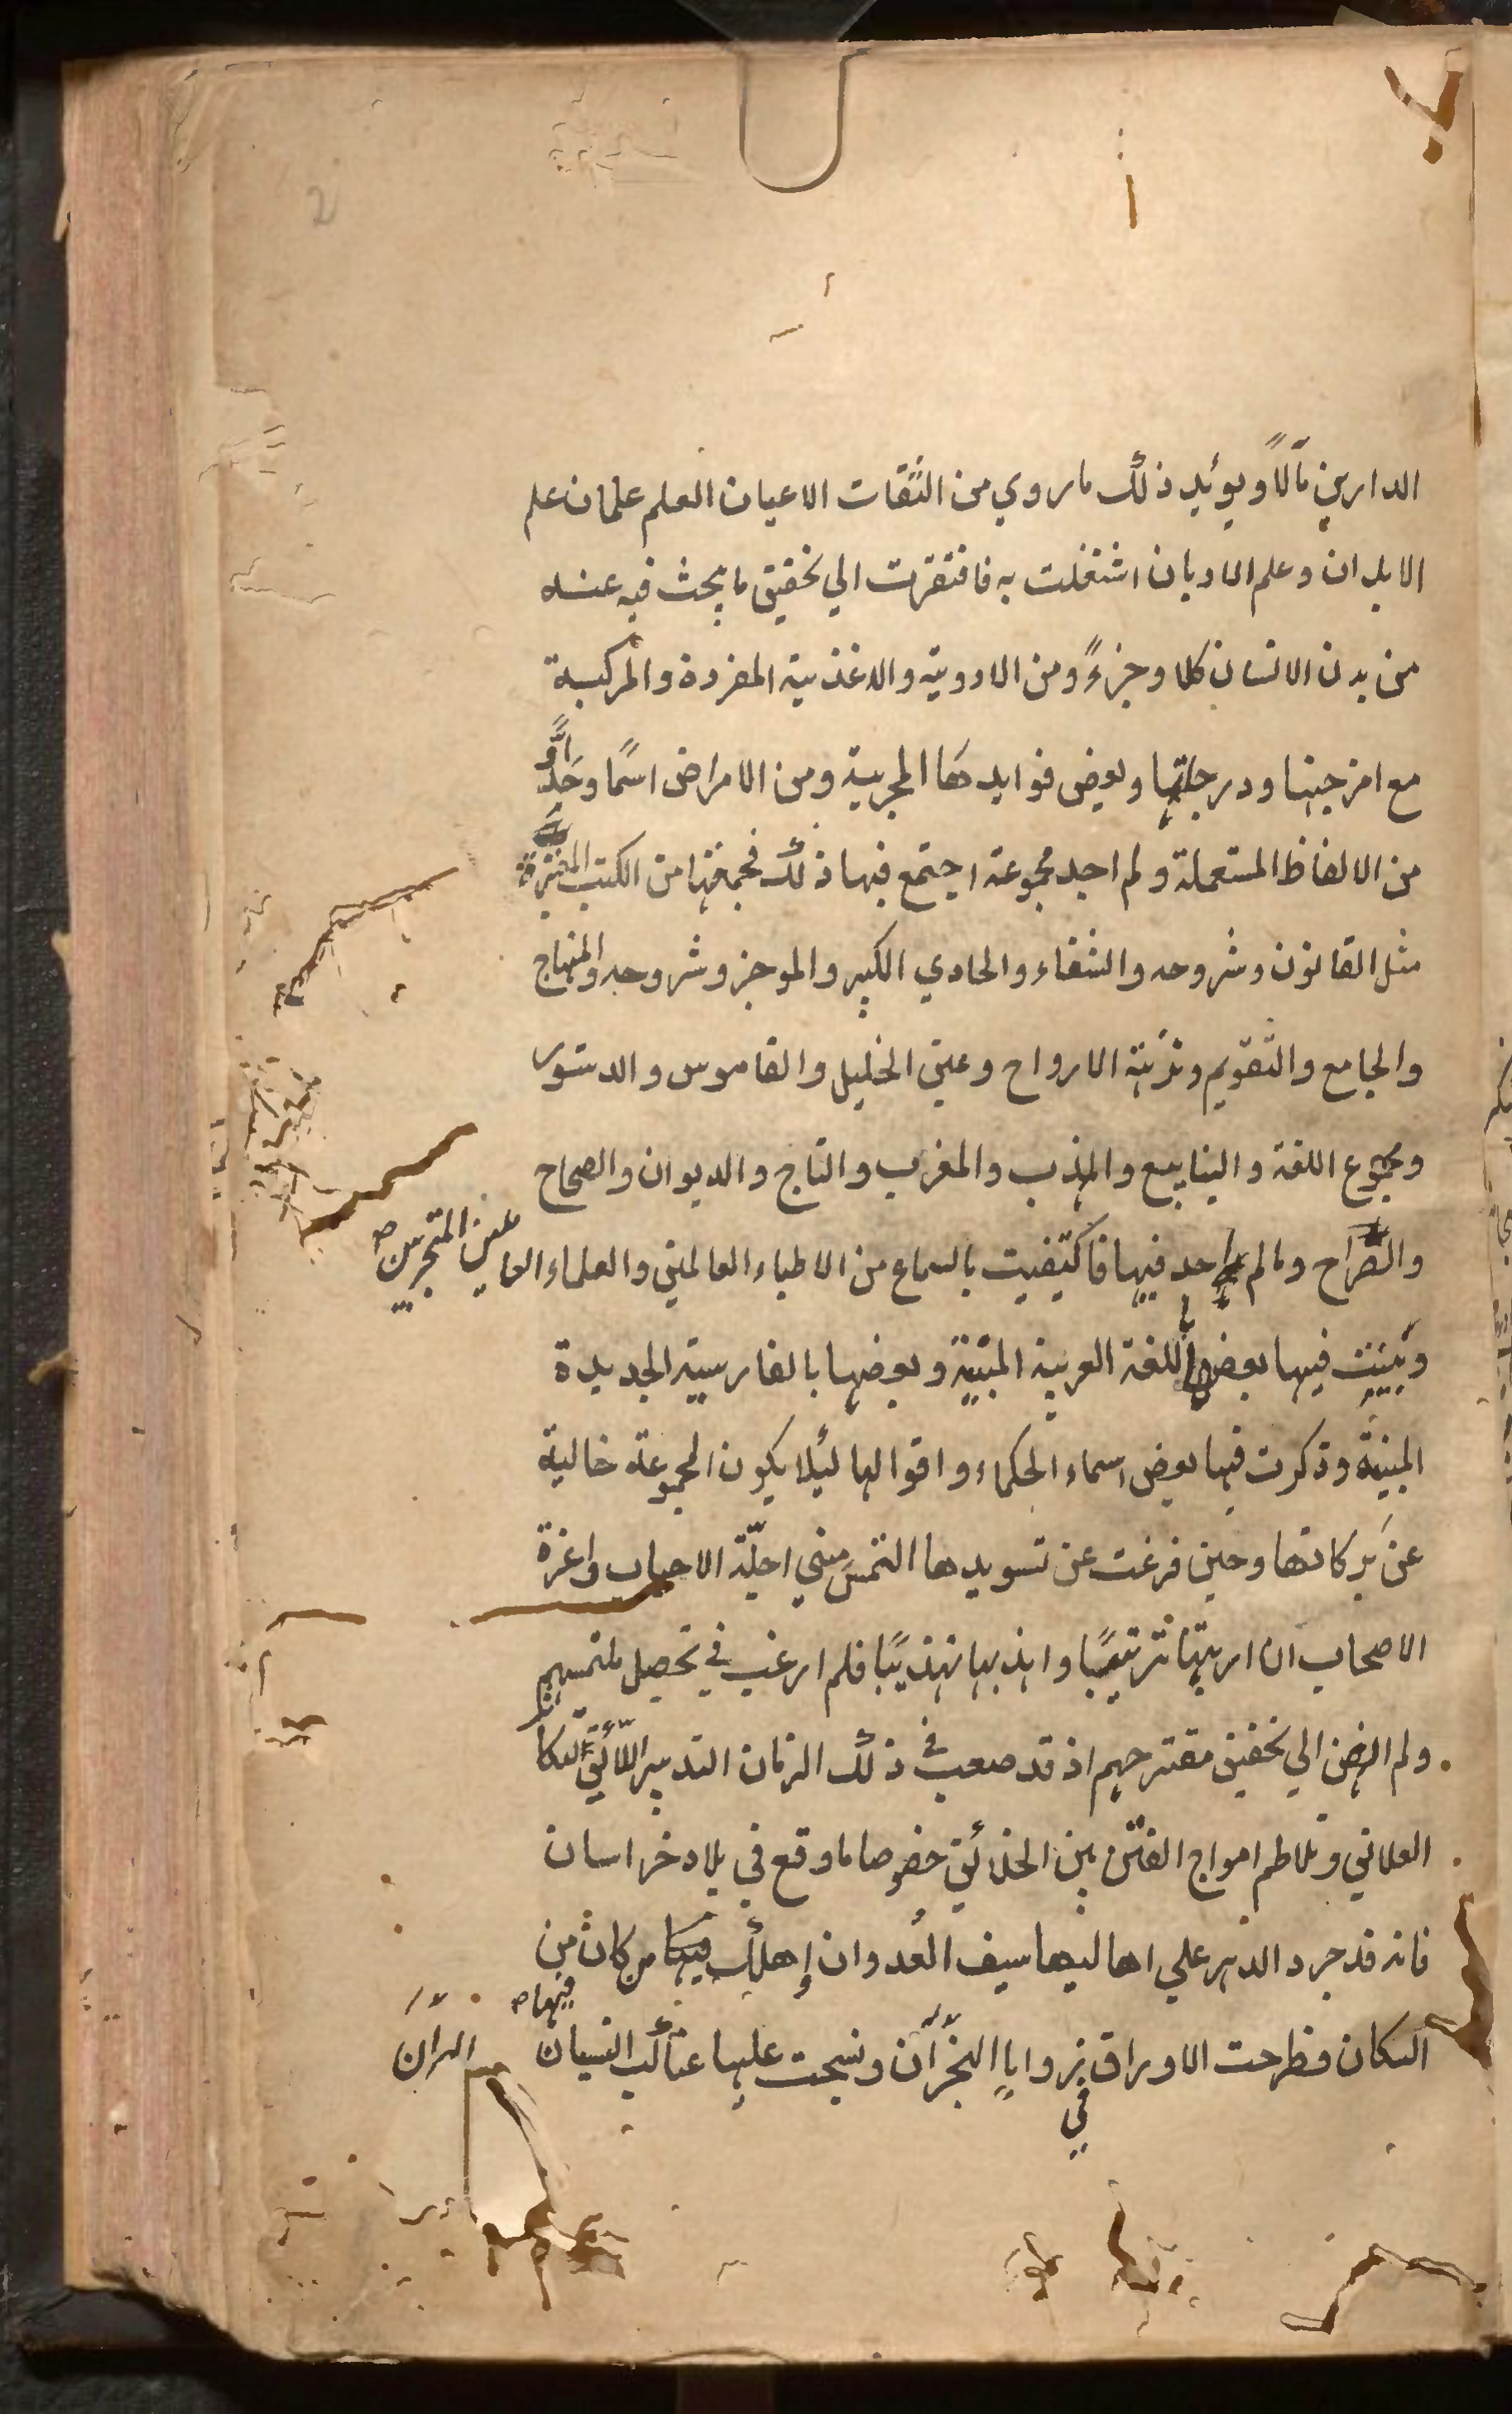 2
الدارين مآلاً ويؤيد ذلك ما روي من الثقات الاعيان العلم علمان علم
الابدان وعلم الاديان اشتغلت به فافتقرت الي تحقيق ما يبحث فيه عنه
من بدن الانسان كلا وجزءً ومن الادوية والاغذية المفردة والمركبة
مع امزجتها ودرجاتها وبعض فوايدها المجربة ومن الامراض اسمًا وحدًّا و
من الالفاظ المستعملة ولم اجد مجموعة اجتمع فيها ذلك فجمعتها من الكتب المعتبرة
مثل القانون وشروحه والشفاء والحاوي الكبير والموجز وشروحه والمنهاج
والجامع والتقويم ونزهة الارواح وعين الخليل والقاموس والدستور
ومجموع اللغة والينابيع والمهذب والمغرب والتاج والديوان والصحاح
والصراح وما لم اجد فيها فاكتفيت بالسماع من الاطباء العالمين والعلماء العاملين المتبحرين
وبينت فيها بعضها باللغة العربية المتينة وبعضها بالفارسية الجديدة
المبينة وذكرت فيها بعض اسماء الحكماء واقوالها ليلا يكون المجموعة خالية
عن بركاتها وحين فرغت عن تسويدها التمس مني اجلّة الاحباب واعزة
الاصحاب ان ارتبها ترتيبًا واهذبها تهذيبًا فلم ارغب في تحصيل ملتمسهم
ولم انهض الي تحقيق مقترحهم اذ قد صعب في ذلك الزمان التدبير اللائق لتكاثر
العلائق وتلاطم امواج الفتن بين الخلائق خصوصا ما وقع في بلاد خراسان
فانه قد جرد الدهر علي اهاليها سيف العدوان واهلك فيها من كان من
فيها
السكان فطرحت الاوراق في زوايا الهجران ونسجت عليها عناكب النسيان